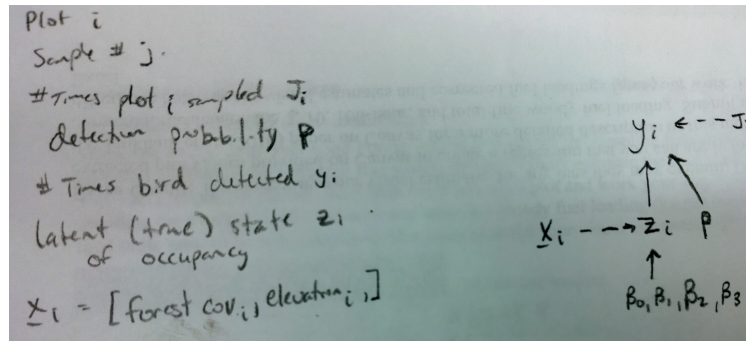 Plot i
Sample # j.
# Times plot i sampled Ji
detection probability p
# Times bird detected yi
latent (true) state zi
of occupancy
xi = [forest cov.i, elevationi,]
yi ← - - J
xi - - → zi p
β0, β1, β2, β3